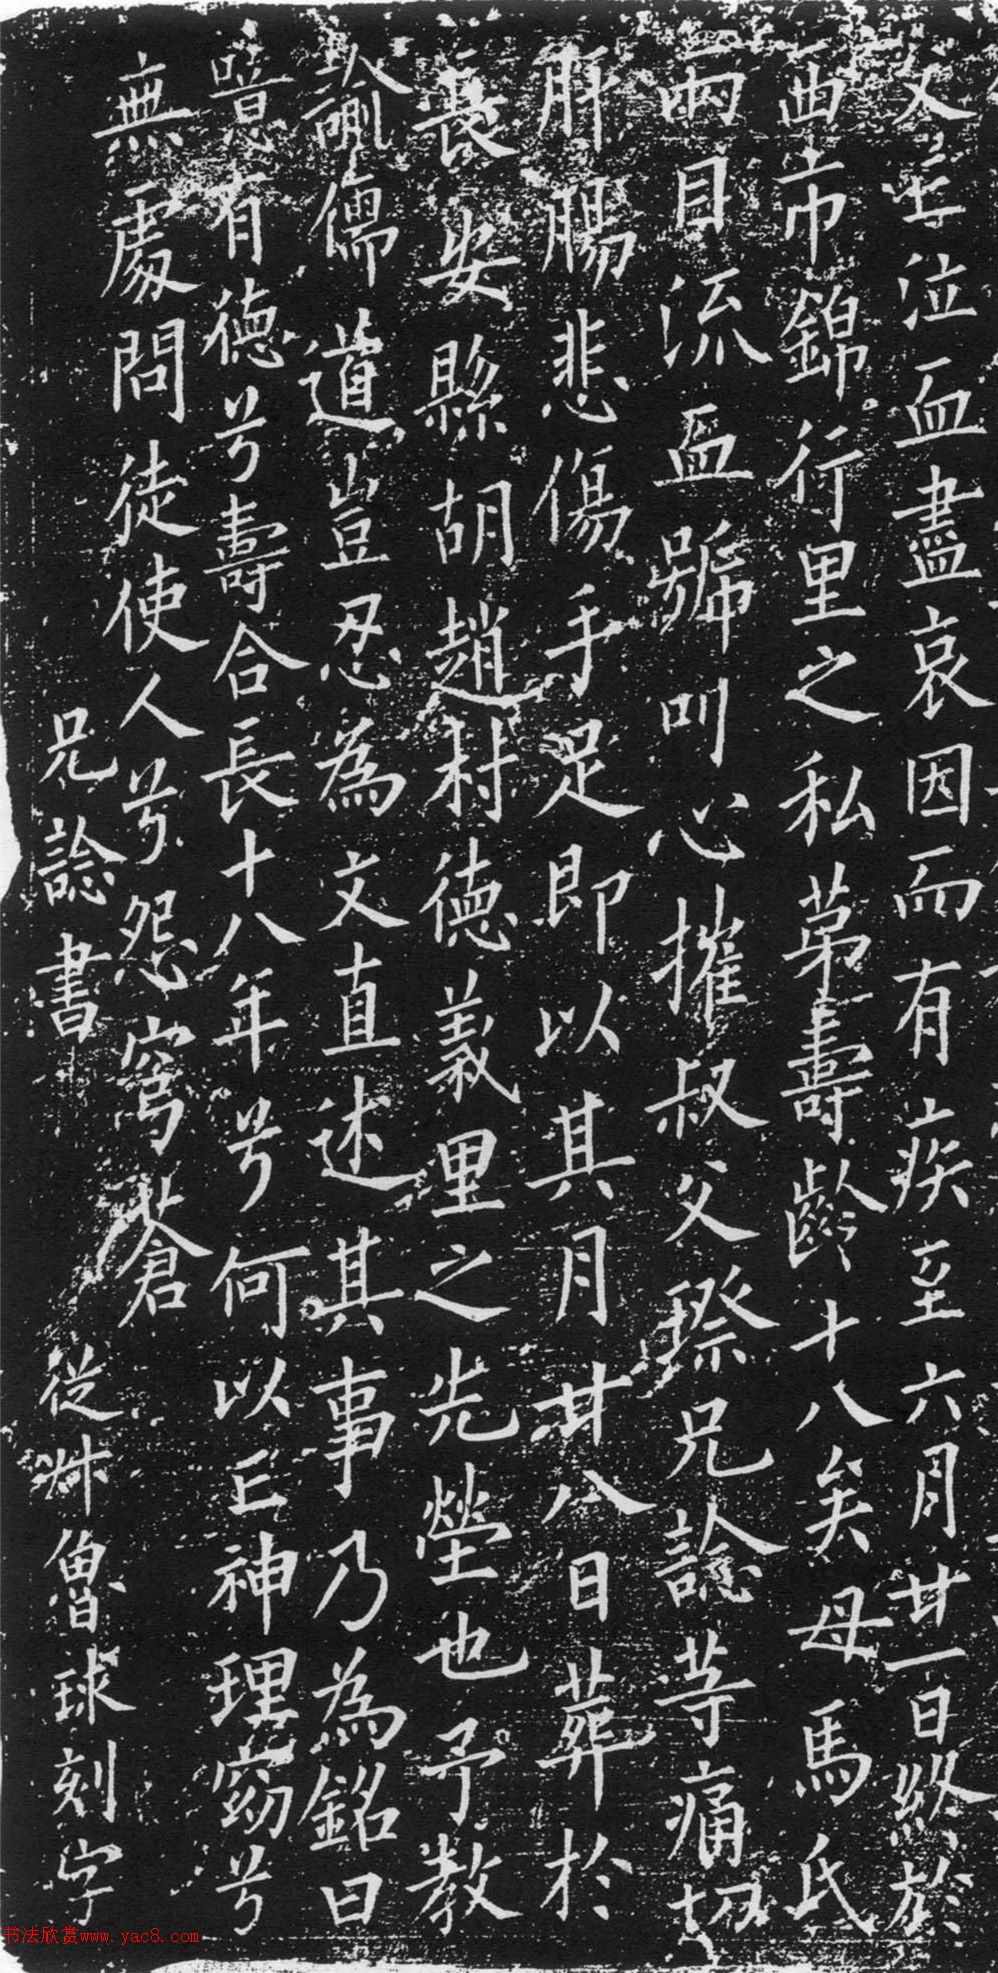 父亡泣血盡哀因而有疾至六月廿一日終於
西市錦行里之私苐壽齡十八矣母馬氏
兩目流血號叫心摧叔父璨兄諗等痛切
肝腸悲傷手足即以其月廿八日葬於
長安縣胡趙村德義里之先塋也予教
諭儒道豈忍為文直述其事乃為銘曰
噫有德兮壽合長十八年兮何以亡神理窈兮
無處問徒使人兮怨穹蒼
兄諗書 從姊魯球刻字
书法欣赏www.yac8.com